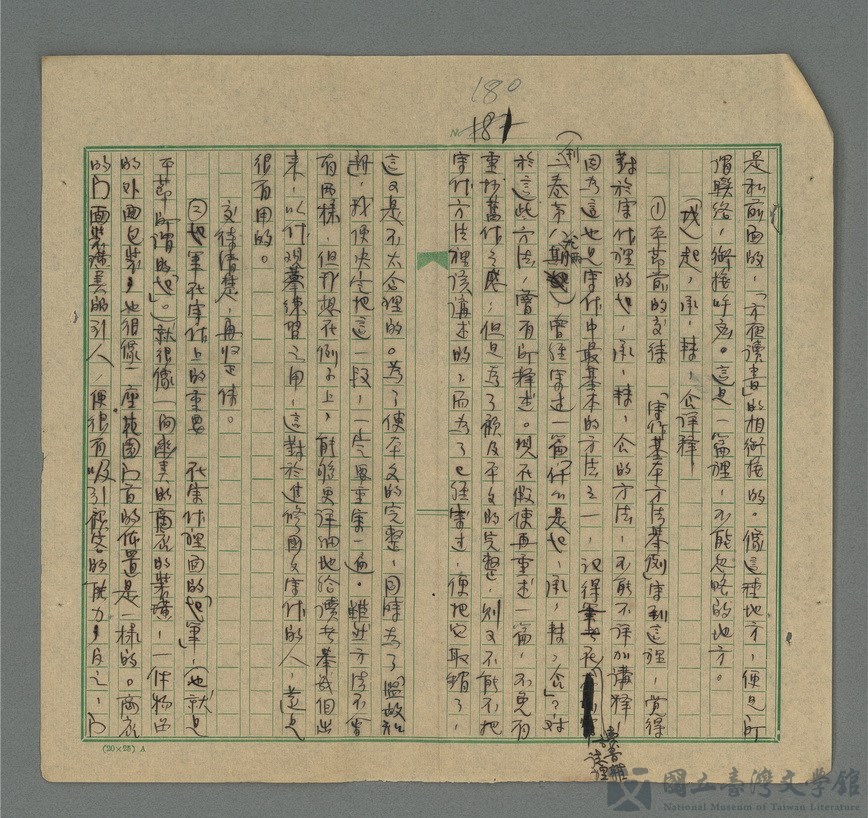 180
181
是和前面的，「不夜讀書」的相銜接的。像這種地方，便是所
謂聯絡，銜接呼應。這是一篇裡，不能忽略的地方。
(戊)起，承，轉，合詳釋
①平節前的交待 「寫作基本方法舉例」寫到這裡，覺得
對於寫作裡的起，承，轉，合的方法，不能不詳加講釋，
因為這也是寫作中最基本的方法之一，記得筆者在
(創 第八期 曾經寫過一篇「什么是起，承，轉，合」？對
於這些方法，曾有所釋述。現在假使再重述一篇，不免有
重抄舊作之感，但是為了顧及本文的完整，則又不能不把
寫作方法裡該講述的，而為了已經寫過，便把它取銷了，
這又是不太合理的。為了使本文的完整，同時為了「溫故知
，我便決定地這一段，一定要重寫一遍。雖然方法不會
有兩樣，但我想在例子上，能夠更詳細地給讀者舉幾個出
來，以作觀摹練習之用，這對於進修國文寫作的人，該是
很有用的。
交待清楚，再歸正傳。
②起筆在寫作上的重要 在寫作裡面的「起筆」，也就是
平節所謂的「起」。就很像一間華美的商店的裝璜，一件物品
的外面包裝，也很像一座花園門首的佈置是一樣的。商店
的門面裝璜美的引人，便很有吸引顧客的能力，反之，門
(20×25) A
國立臺灣文學館
National Museum of Taiwan Literature